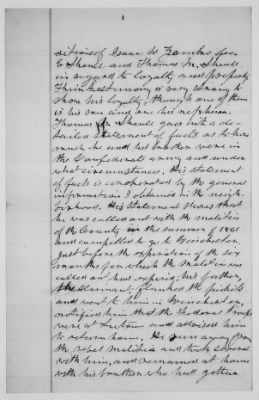 8
E Shaull and Thomas M. Shaull
in regard to loyalty and property
Their testimony is very strong to
show his loyalty, although one of them
is his son and one his nephew.
Thomas M Shaull goes into a de-
tailed statement of facts as to how
much he and his brother were in
the Confederate army and under
what circumstances. His statement
of facts is corroborated by the general
information I obtained in the neigh-
borhood. His statement shows that
he was called out with the militia
of the County in the summer of 1861
and compelled to go to Winchester,
just before the expiration of the six
months for which the militia was
called out had expired, his father,
the claimant, flanked the pickets
and went to him in Winchester,
notified him that the Federal troops
were at and advised him
to return home. He run away from
the rebel militia and took
with him, and remained at home
with his brother who had gotten